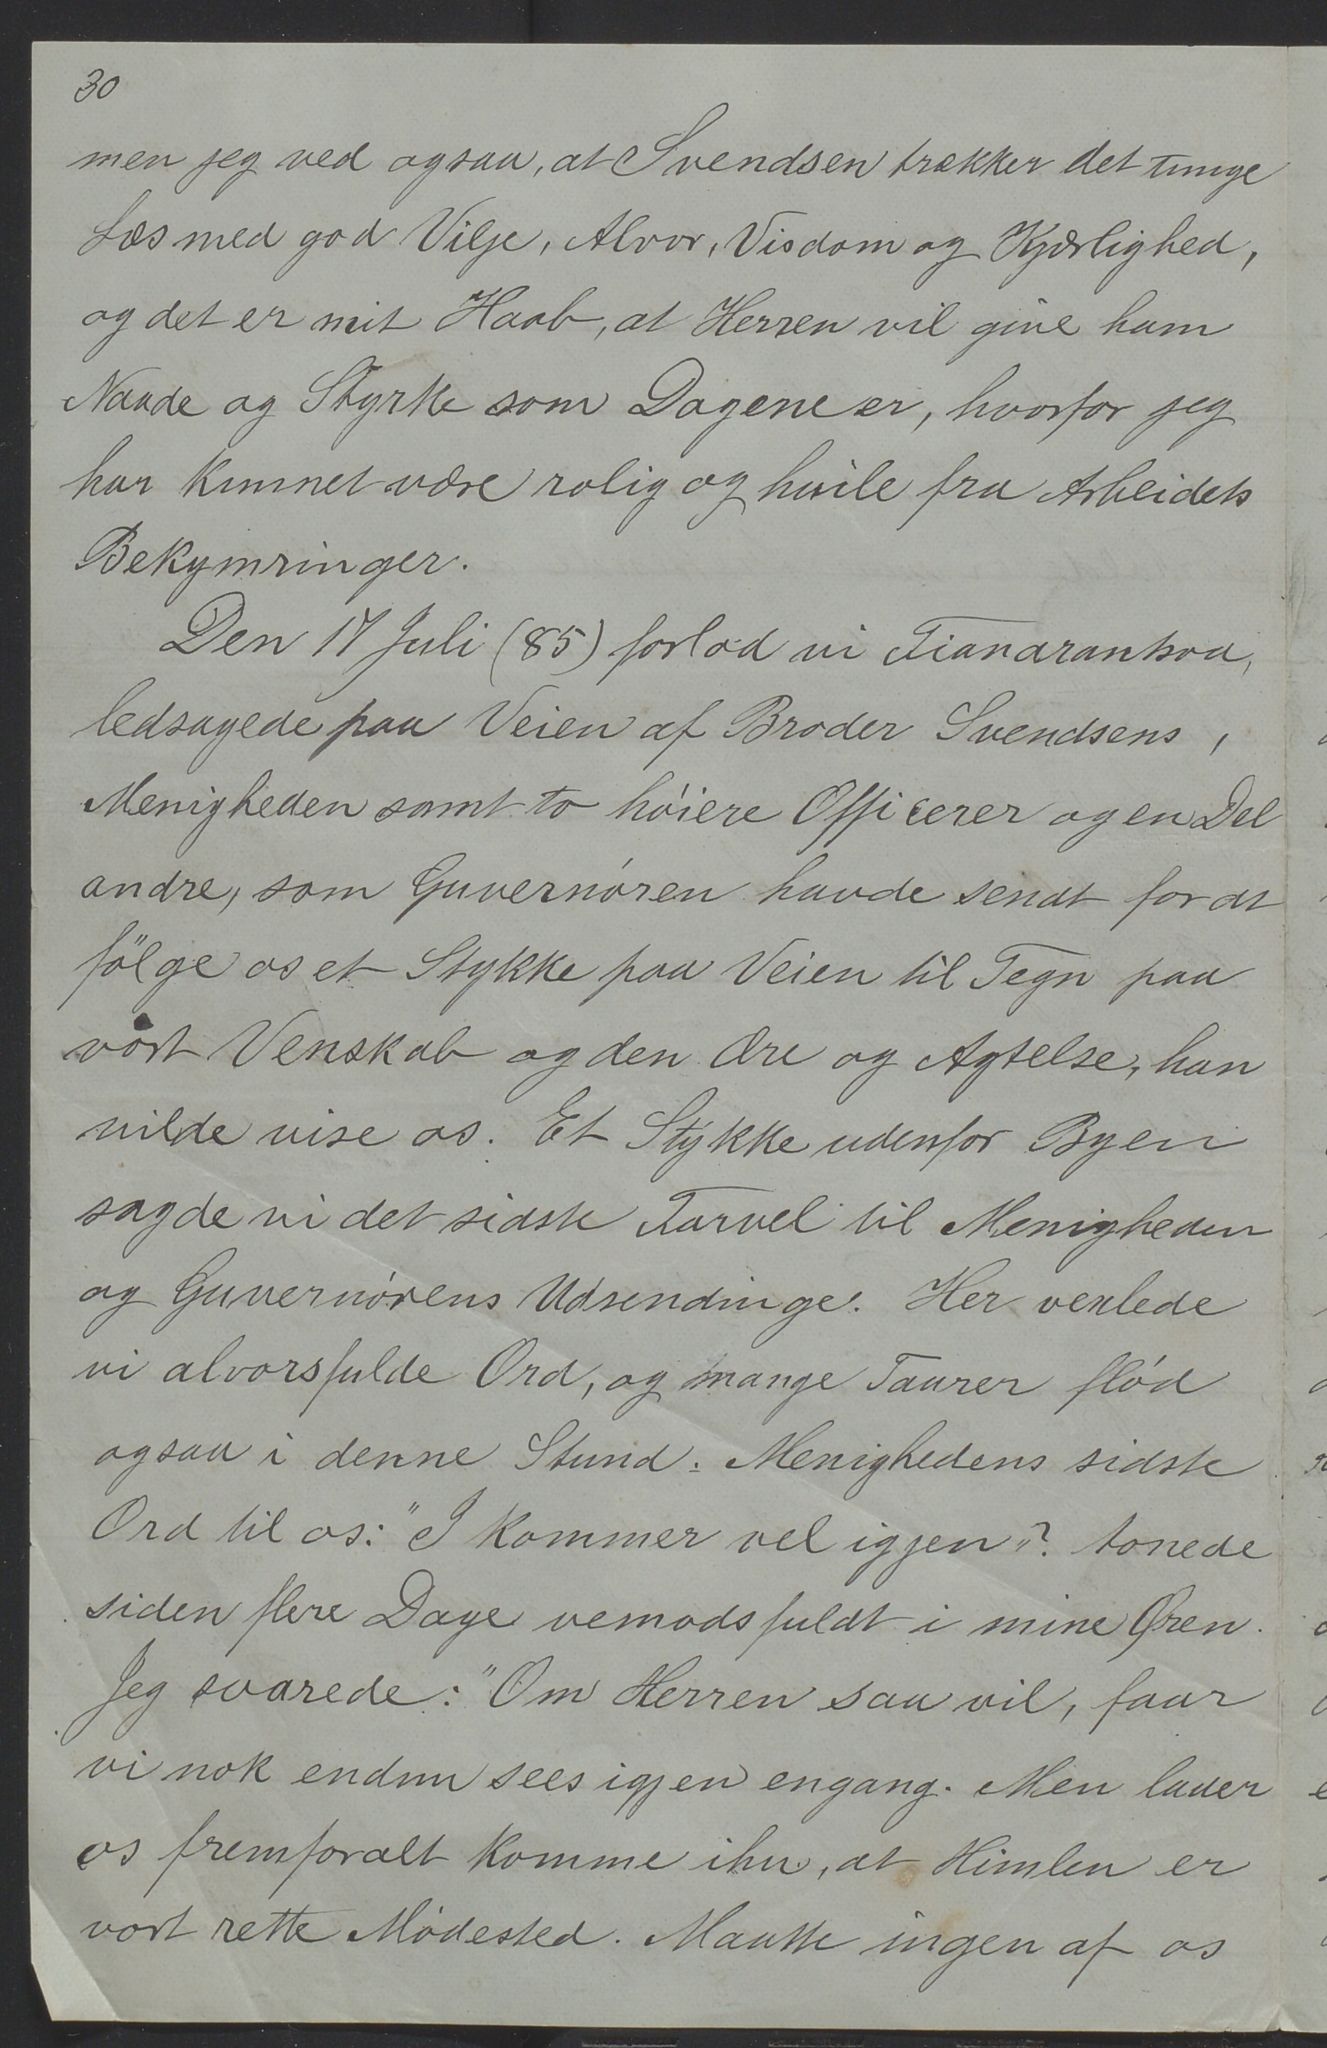 30
men jeg ved ogsaa, at Svendsen trækker det tunge
Læs med god Vilje, Alvor, Visdom og Kjærlighed,
og det er mit Haab, at Herren vil give ham
Naade og Styrke som Dagene er, hvorfor jeg
har kunnet være rolig og hvile fra Arbeidets
Bekymringer.
Den 17 Juli (85) forlod vi Fianarantsoa,
ledsagede paa Veien af Broder Svendsens,
Menigheden samt to höiere Officerer og en Del
andre, som Guvernören havde sendt for at
fölge os et Stykke paa Veien til Tegn paa
vort Venskab og den Ære og Agtelse, han
vilde vise os. Et Stykke udenfor Byen
sagde vi det sidste Farvel til Menigheden
og Guvernörens Udsendinge. Her vexlede
vi alvorsfulde Ord, og mange Taarer flöd
ogsaa i denne Stund. Menighedens sidste
Ord til os: "I kommer vel igjen"? tonede
siden flere Dage vemodsfuldt i mine Øren.
Jeg svarede: "Om Herren saa vil, faar
vi nok endnu sees igjen engang. Men lader
os fremforalt komme ihu, at Himlen er
vort rette Mödested. Maatte ingen af os